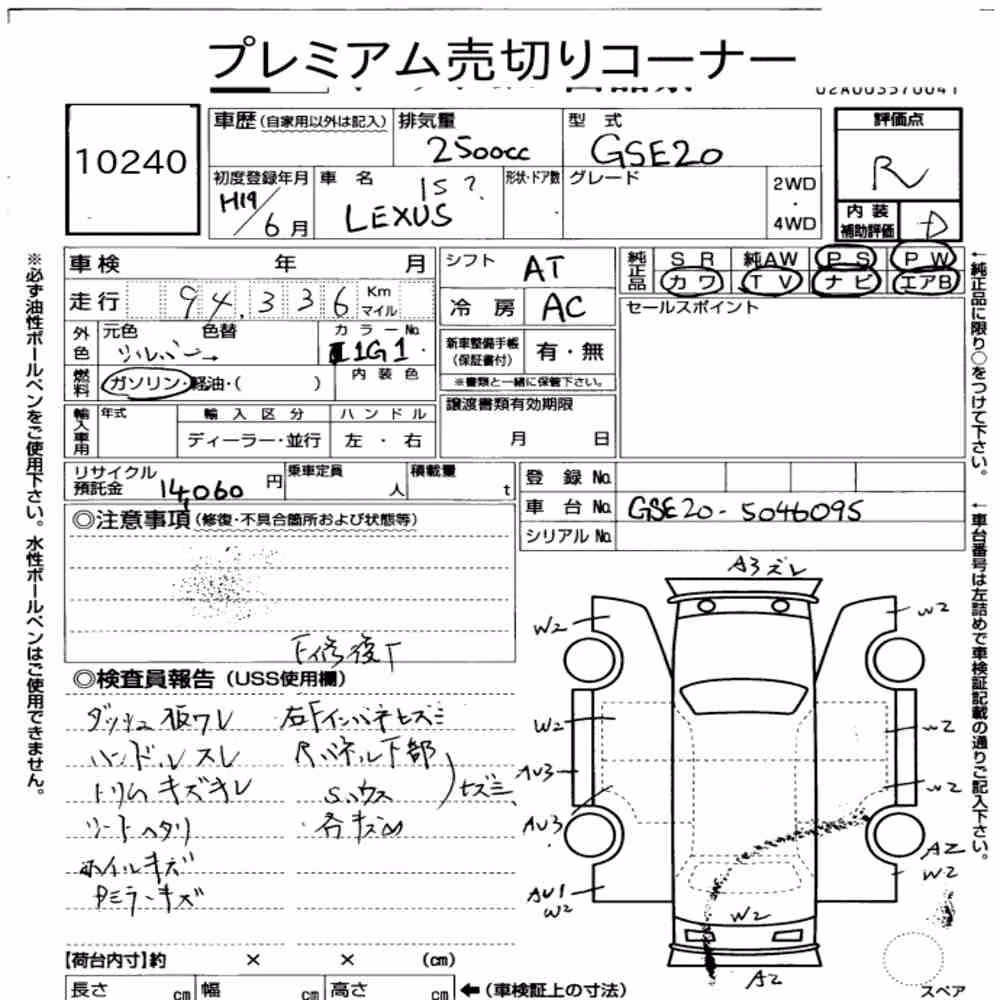 プレミアム売切りコーナー
10240
車歴 (自家用以外は記入)
排気量
2500cc
型式
GSE20
評価点
R
初度登録年月
H19/6月
車名
IS ?
LEXUS
形状・ドア数
グレード
2WD
・
4WD
内装
補助評価
D
車検 年 月
シフト
AT
純正品
SR 純AW PS PW
カワ TV ナビ エアB
走行
94,336
Km
マイル
冷房
AC
セールスポイント
外色
元色 色替
シルバー
カラーNo.
1G1
新車整備手帳
(保証書付)
有・無
※書類と一緒に保管下さい。
燃料
ガソリン・軽油・( )
内装色
譲渡書類有効期限
月 日
輸入車用
年式
輸入区分
ハンドル
ディーラー・並行
左・右
リサイクル
預託金
14,060円
乗車定員
人
積載量
t
登録No.
車台No.
GSE20-5046095
シリアルNo.
◎注意事項(修復・不具合箇所および状態等)
F修復下
◎検査員報告(USS使用欄)
ダッシュ板ワレ 右Fインパネヒズミ
ハンドルスレ Rパネル下部
トリムキズキレ Sハウス
ヒズミ
シートヘタリ 各キズ
ホイルキズ
Pミラーキズ
A3ズレ
W2
W2
W2
W2
AU3
W2
AU3
A2
W2
AU1
W2
W2
A2
スペア
【荷台内寸】約 × × (cm)
長さ cm 幅 cm 高さ cm
←(車検証上の寸法)
※必ず油性ボールペンをご使用下さい。水性ボールペンはご使用できません。
←純正品に限り○をつけて下さい。
←車台番号は左詰めで車検証記載の通りご記入下さい。